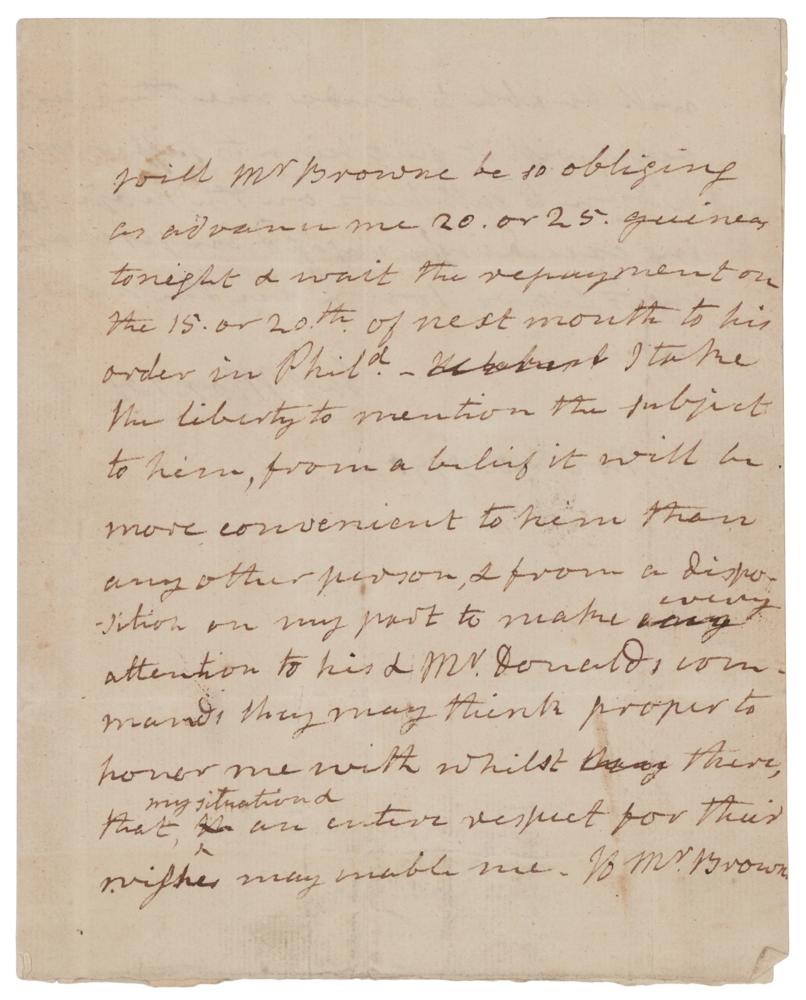 Will Mr Browne be so obliging
as advance me 20. or 25. guineas
tonight & wait the repayment on
the 15. or 20.th of next month to his
order in Phild. - I take
the liberty to mention the subject
to him, from a belief it will be
more convenient to him than
any other person, & from a dispo-
-sition on my part to make any every
attention to his & Mr. Donalds com-
mands they may think proper to
honor me with whilst there,
that, my situation & an entire respect for their
wishes may enable me. If Mr. Browne